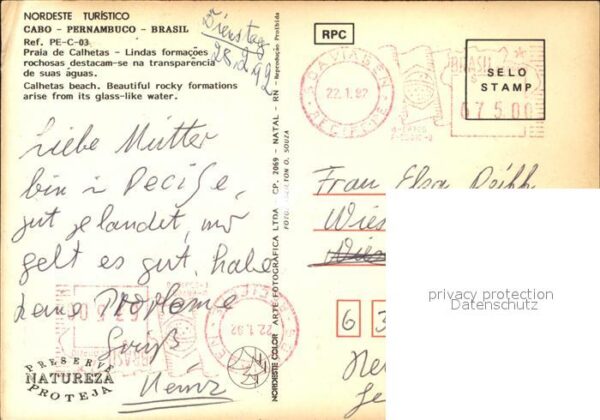 NORDESTE TURÍSTICO
CABO - PERNAMBUCO - BRASIL
Ref. PE-C-03
Praia de Calhetas - Lindas formações
rochosas destacam-se na transparência
de suas águas.
Calhetas beach. Beautiful rocky formations
arise from its glass-like water.
Dienstag
Liebe Mutter
bin
gut gelandet, mir
geht es gut, habe
keine Probleme
Gruß
Heinz
PRESERVE
NATUREZA
PROTEJA
NORDESTE COLOR - ARTE FOTOGRÁFICA LTDA. CP. 2069 - NATAL - RN - Reprodução Proibida
RPC
BOA VIAGEM
22.1.92
BRASIL
67500
SELO
STAMP
Frau Elsa
Wies
6 3
22.1.92
BRASIL
privacy protection
Datenschutz